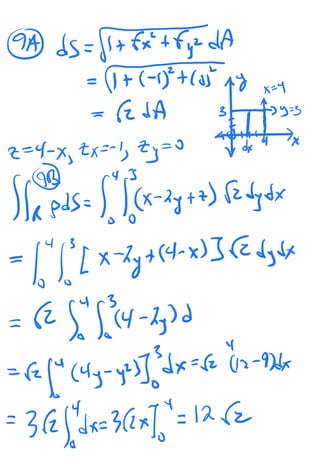 9A dS = √1 + fx² + fy² dA
= √1 + (-1)² + (0)²
= √2 dA
y
x=4
3
y=3
dx 4 x
z = 4-x, zx = -1, zy = 0
9B
∬R ρdS = ∫₀⁴ ∫₀³ (x-2y+z) √2 dydx
= ∫₀⁴ ∫₀³ [x-2y+(4-x)] √2 dydx
= √2 ∫₀⁴ ∫₀³ (4-2y) d
= √2 ∫₀⁴ (4y-y²)]₀³ dx = √2 ⁴ (12-9)dx
= 3√2 ∫₀⁴ dx = 3√2x]₀⁴ = 12√2